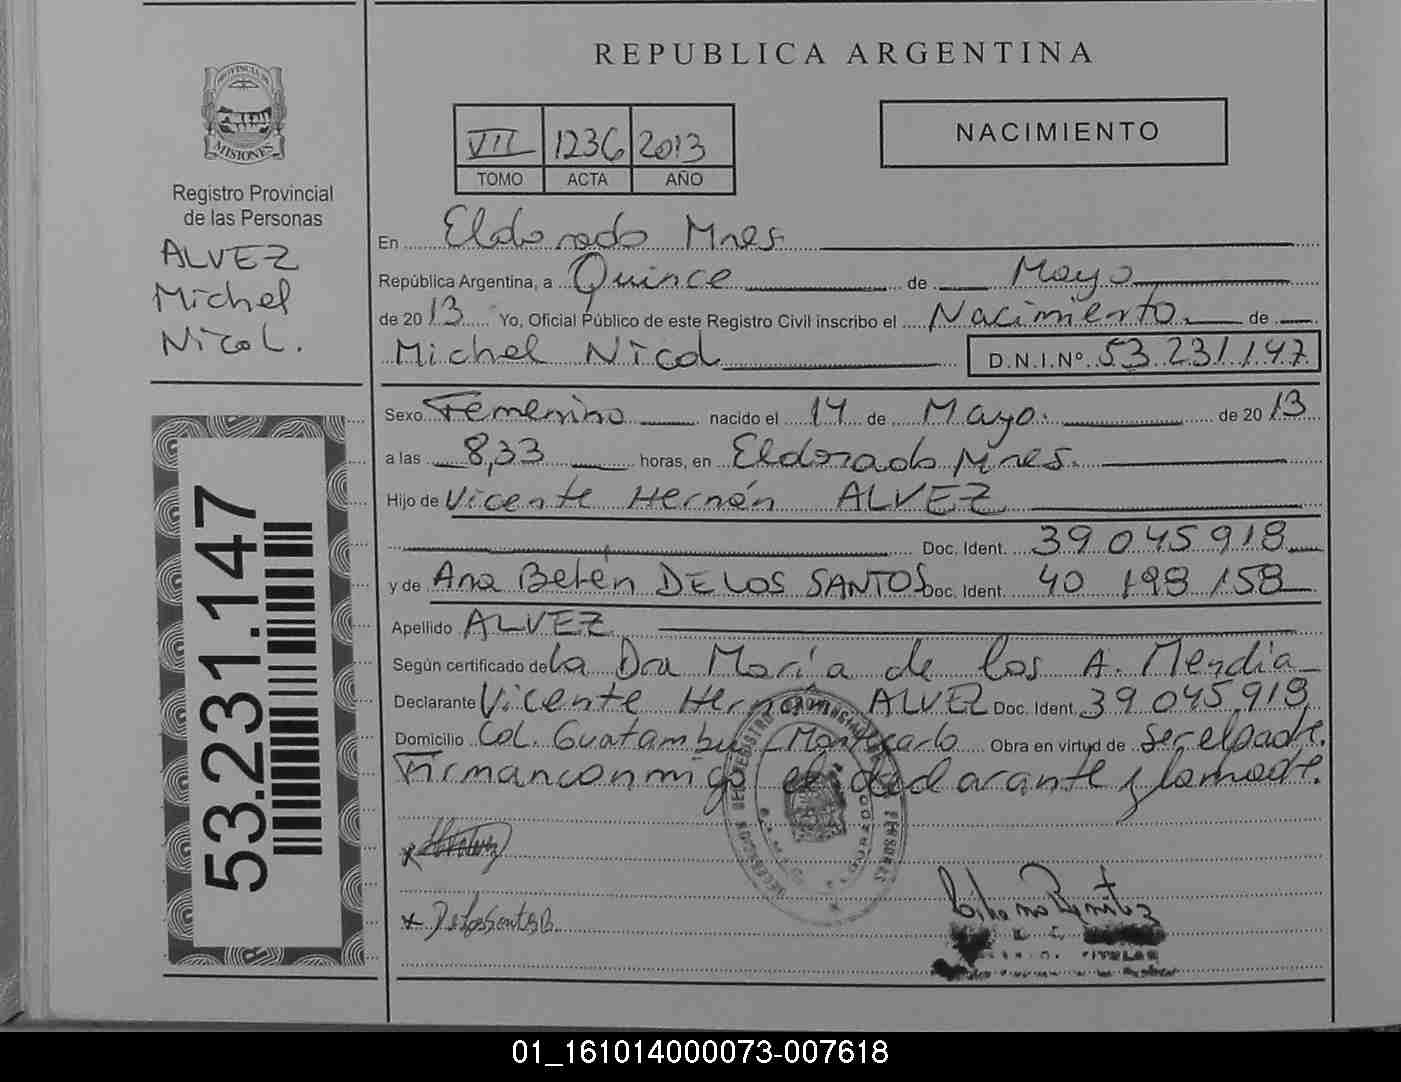 REPUBLICA ARGENTINA
PROVINCIA DE
MISIONES
Registro Provincial
de las Personas
ALVEZ
Michel
Nicol.
VII 1236 2013
TOMO ACTA AÑO
NACIMIENTO
En Eldorado Mnes.
República Argentina, a Quince de Mayo
de 2013 Yo, Oficial Público de este Registro Civil inscribo el Nacimiento de
Michel Nicol D.N.I.Nº 53.231.147
Sexo Femenino nacido el 14 de Mayo. de 2013
a las 8,33 horas, en Eldorado Mnes.
Hijo de Vicente Hernán ALVEZ
Doc. Ident. 39 045 918
y de Ana Belén DE LOS SANTOS Doc. Ident. 40 198 158
Apellido ALVEZ
Según certificado de la Dra María de los A. Mendia
Declarante Vicente Hernán ALVEZ Doc. Ident. 39 045.918
Domicilio Col. Guatambu, Montecarlo Obra en virtud de Ser el padre.
Firman conmigo el declarante y la madre.
De Los Santos B.
TITULAR
53.231.147
01_161014000073-007618